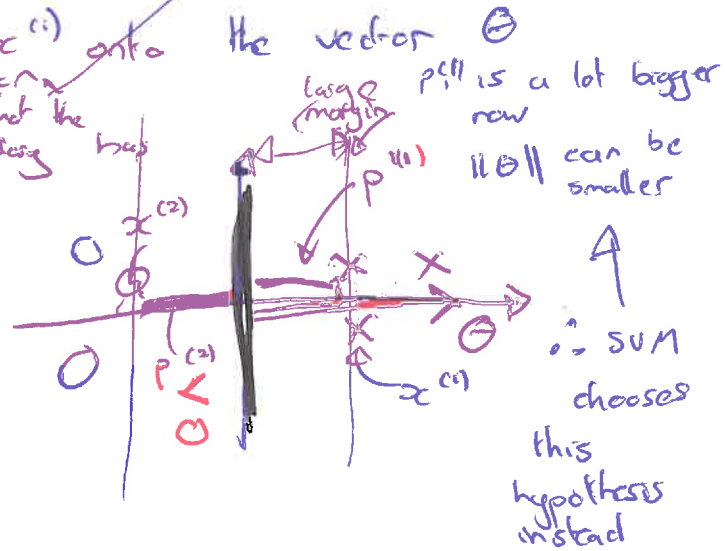 x^(i) onto the vector θ
the
has
large margin
p^(1) is a lot bigger
now
||θ|| can be
smaller
p^(1)
x^(2)
θ
p^(2)
< 0
x^(1)
∴ SVM
chooses
this
hypothesis
instead